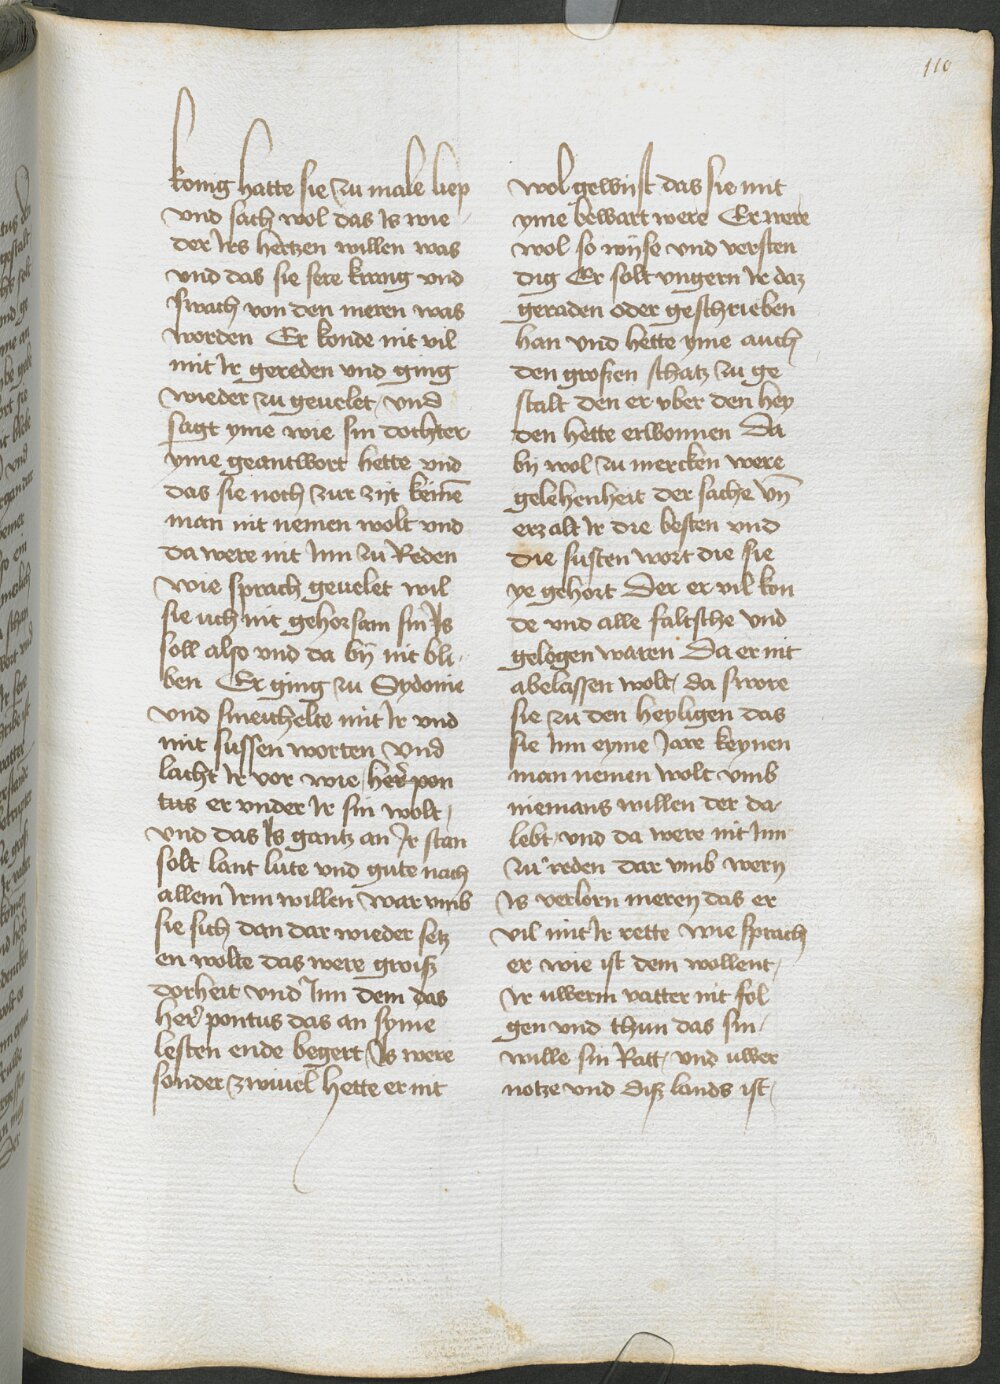 110
konig hatte sie zu male liep
vnd sach wol das Is wie
der Irs hertzen willen was
vnd das sie sere krang vnd
swach von den meren was
worden Er konde nit vil
mit Ir gereden vnd ging
wieder zu geuelet / vnd
sagt yme wie sin dochter
yme geantwort hette vnd
das sie noch zur zijt keinē
man nit nemen wolt vnd
da were nit Inn zu Reden
wie sprach geuelet wil
sie uch nit gehorsam sin Is
soll also vnd da bij nit bli-
ben Er ging zu Sydonie
vnd smeichelte mit Ir vnd
mit sussen worten vnd
lacht Ir vor wie her̄ pon
tus er vnder Ir sin wolt /
vnd das Is gantz an Ir stan
solt lant lute vnd gute nach
allem Irm willen war vmb
sie sich dan dar wieder setz
en wolte das were groisz
dorheit vnd Inn dem das
her̄ pontus das an syme
lesten ende begert / Is were
sonder zwiuel hette er nit
wol gewist das sie mit
yme bewart were Er were
wol so wijse vnd versten
dig Er solt vngern Ir daz
geraden oder geschrieben
han vnd hette yme auch
den groszen schatz zu ge
stalt den er vber den hey
den hette erwonnen Da
bij wol zu mercken were
gelehenheit der sache vn̄
erzalt Ir die besten vnd
die susten wort die sie
ye gehort Der er vil kon
de vnd alle faltsche vnd
gelogen waren Da er nit
abelassen wolt / da swore
sie zu den heyligen das
sie Inn eyme Jare keynen
man nemen wolt vmb
niemans willen der da
lebt / vnd da were nit Inn
zu reden dar vmb wern
Is verlorn meren das er
vil mit Ir rette wie sprach
er wie ist dem wollent /
Ir uwerm vatter nit fol
gen vnd thun das sin /
wille sin Ratt / vnd uwer
notze vnd disz lands ist /